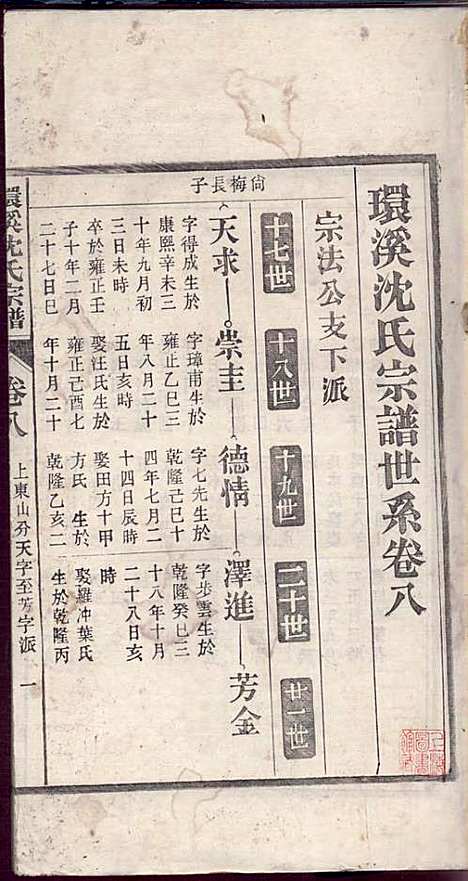 環溪沈氏宗譜世系卷八
宗法公支下派
十七世
十八世
十九世
二十世
廿一世
尙梅長子
天求
崇圭
德情
澤進
芳金
字得成生於
康熙辛未三
十年九月初
三日未時
卒於雍正壬
子十年二月
二十七日巳
字璋甫生於
雍正乙巳三
年八月二十
五日亥時
娶汪氏生於
雍正己酉七
年十月二十
字七先生於
乾隆己巳十
四年七月二
十四日辰時
娶田方十甲
方氏 生於
乾隆乙亥二
字步雲生於
乾隆癸巳三
十八年十月
二十八日亥
時
娶羅冲葉氏
生於乾隆丙
環溪沈氏宗譜
卷八
上東山分天字至芳字派
一